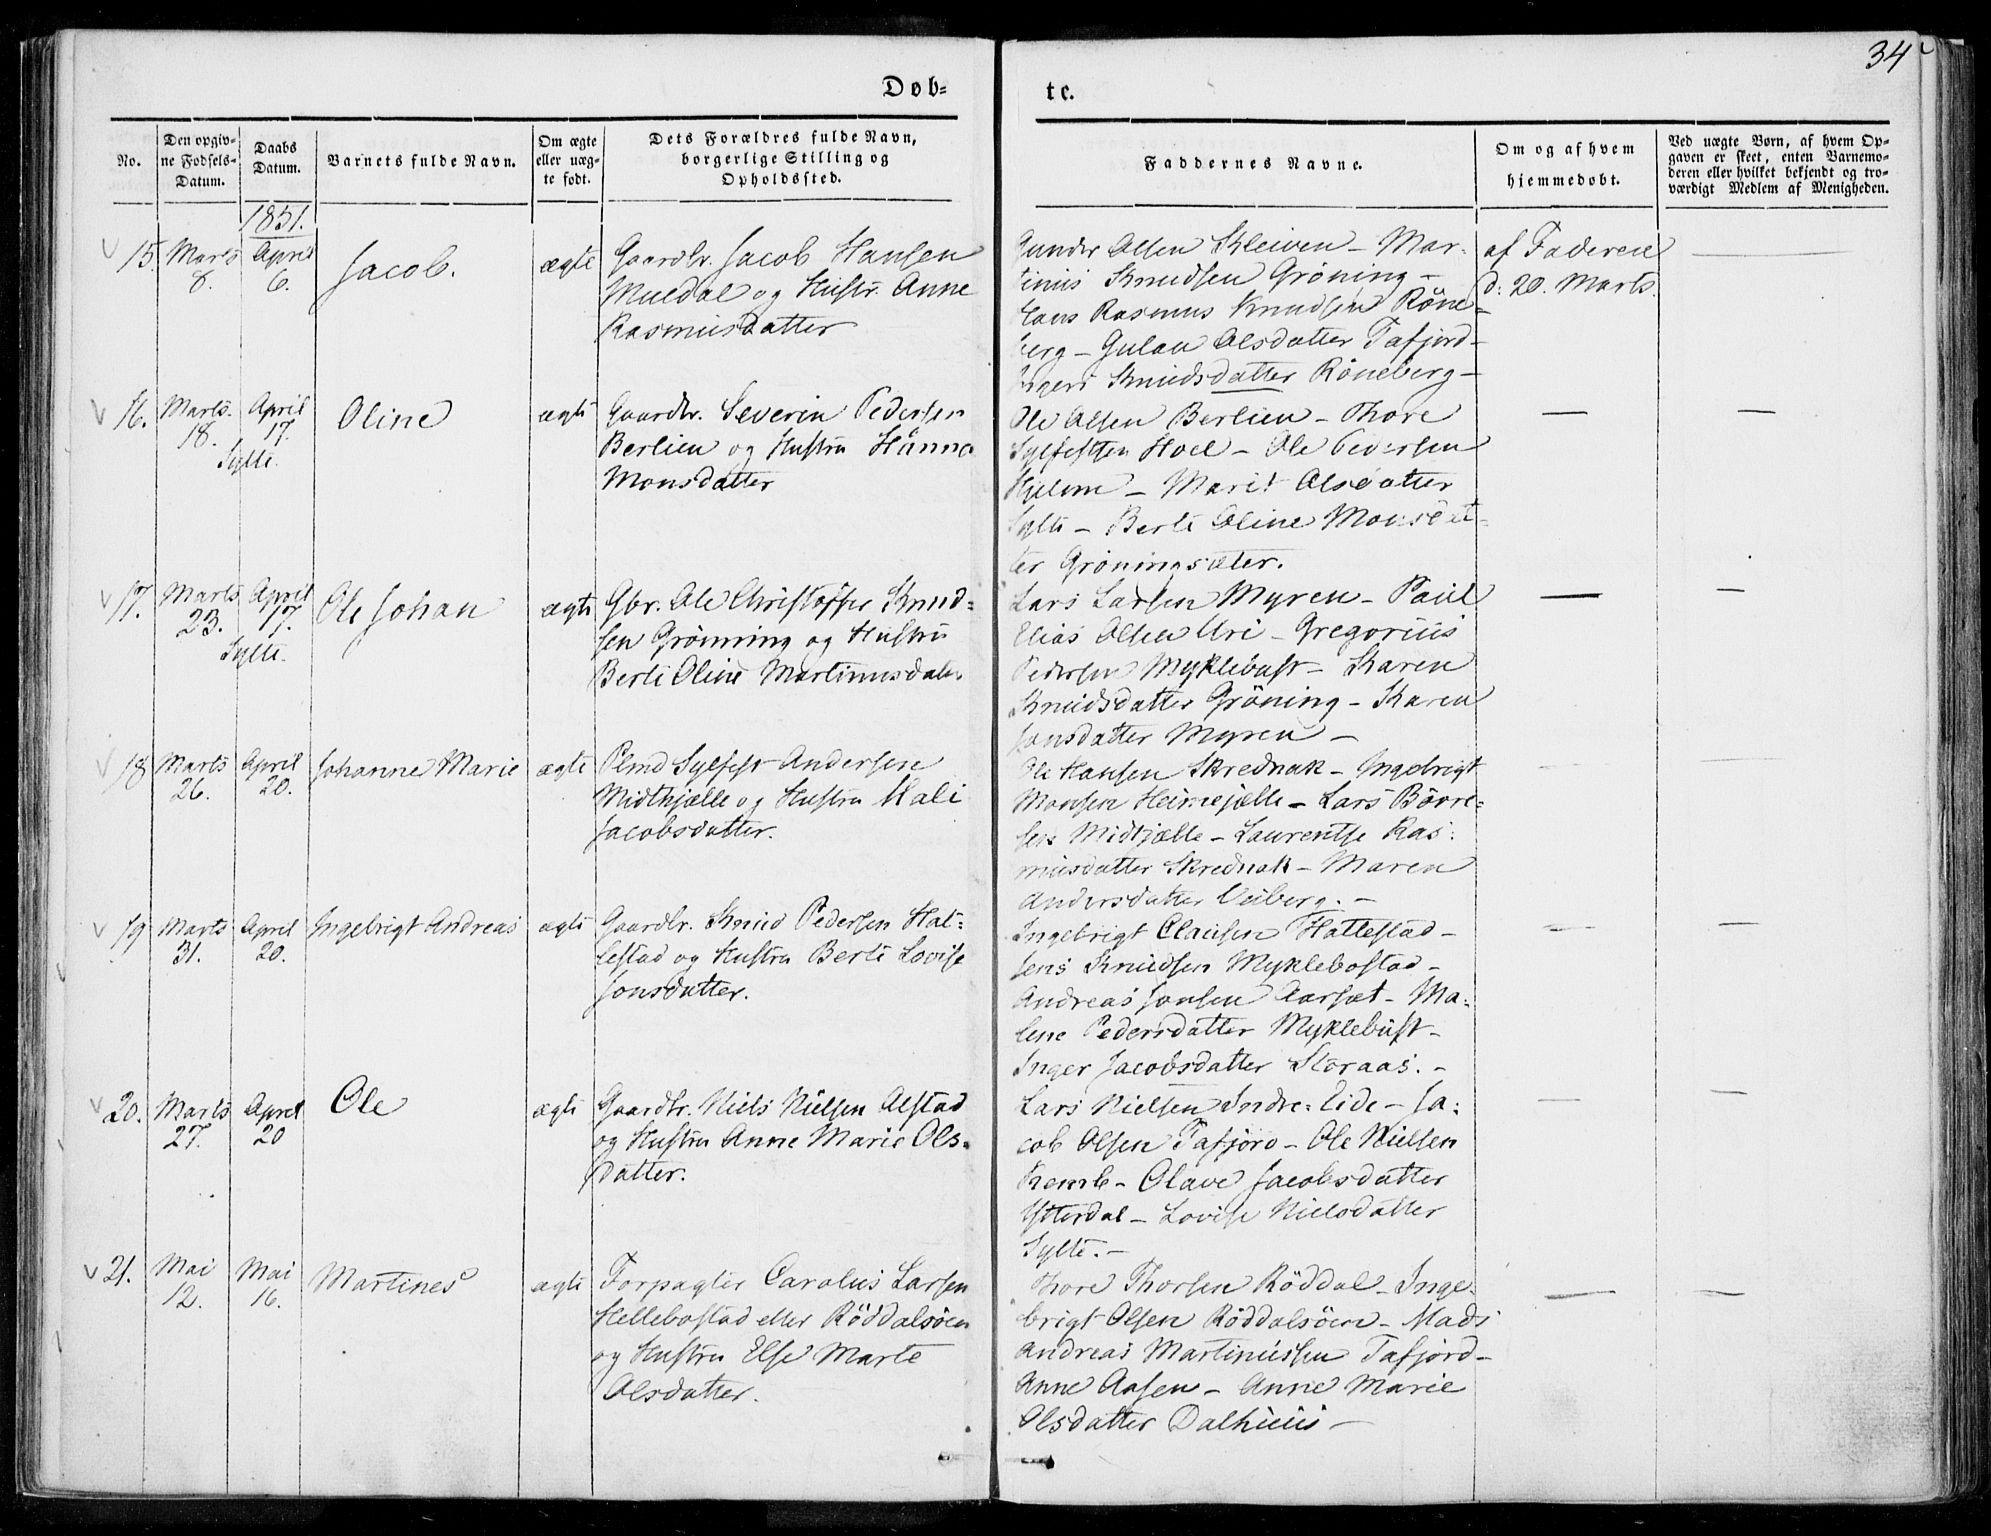 34
Døb-
te.
No.
Den opgiv-
ne Fødsels-
Datum.
Daabs
Datum.
Barnets fulde Navn.
Om ægte
eller uæg-
te født.
Dets Forældres fulde Navn,
borgerlige Stilling og
Opholdssted.
Faddernes Navne.
Om og af hvem
hjemmedøbt.
Ved uægte Børn, af hvem Op-
gaven er skeet, enten Barnemo-
deren eller hvilket bekjendt og tro-
værdigt Medlem af Menigheden.
1851.
15.
Marts
8.
April
6.
Jacob.
ægte
Gaardbr. Jacob Hansen
Muldal og Hustr. Anne
Rasmusdatter
Gunder Olsen Kleiven - Mar-
tinus Knudsen Gröning -
Rasmus Knudsen Röne-
berg - Gulau Olsdatter Tafjord -
Knudsdatter Röneberg -
af Faderen
d: 20. Marts.
16.
Marts
18.
April
17.
Sylte.
Oline
ægte
Gaardbr. Severin Pedersen
Berlien og Hustru Hanna
Monsdatter
Ole Olsen Berlien - Thore
Sylfestsen Hoel - Ole Pedersen
Hjelme - Marit Olsdatter
Sylte - Berte Oline Monsdat-
ter Gröningsæter.
17.
Marts
23.
April
17.
Sylte.
Ole Johan
ægte
Gbr. Ole Christoffer Knud-
sen Grönning og Hustru
Berte Oline Martinusdatr.
Lars Larsen Myren - Paul
Elias Olsen Uri - Gregorius
Pedersen Myklebust - Karen
Knudsdatter Gröning - Karen
Jonsdatter Myren -
18
Marts
26.
April
20.
Johanne Marie
ægte
Plmd Sylfest Andersen
Midthjelle og Hustru Kali
Jacobsdatter.
Ole Hansen Skrednak - Ingebrigt
Monsen Heimejelle - Lars Bövre-
sen Midtjælle - Laurentse Ras-
musdatter Skrednak - Maren
Andersdatter Veiberg. -
19
Marts
31.
April
20.
Ingebrigt Andreas
ægte
Gaardbr. Knud Pedersen Hat-
lestad og Hustru Berte Lovise
Jonsdatter.
Ingebrigt Clausen Hattestad -
Jens Knudsen Myklebostad -
Andreas Jonsen Aarsæt - Ma-
lene Pedersdatter Myklebust -
Inger Jacobsdatter Storaas. -
20.
Marts
27.
April
20
Ole
ægte
Gaardbr. Niels Nielsen Alstad
og Hustru Anne Marie Ols-
datter.
Lars Nielsen Indre-Eide - Ja-
cob Olsen Tafjord - Ole Nielsen
Remb - Olave Jacobsdatter
Ytterdal - Lovise Nielsdatter
Sylte. -
21.
Mai
12.
Mai
16.
Martines
ægte
Forpagter Carolus Larsen
Hellebostad eller Röddalsöen
og Hustru Else Marte
Olsdatter.
Thore Thorsen Röddal - Inge-
brigt Olsen Röddalsöen - Mads
Andreas Martinussen Tafjord -
Anne Aasen - Anne Marie
Olsdatter Dalhuus -